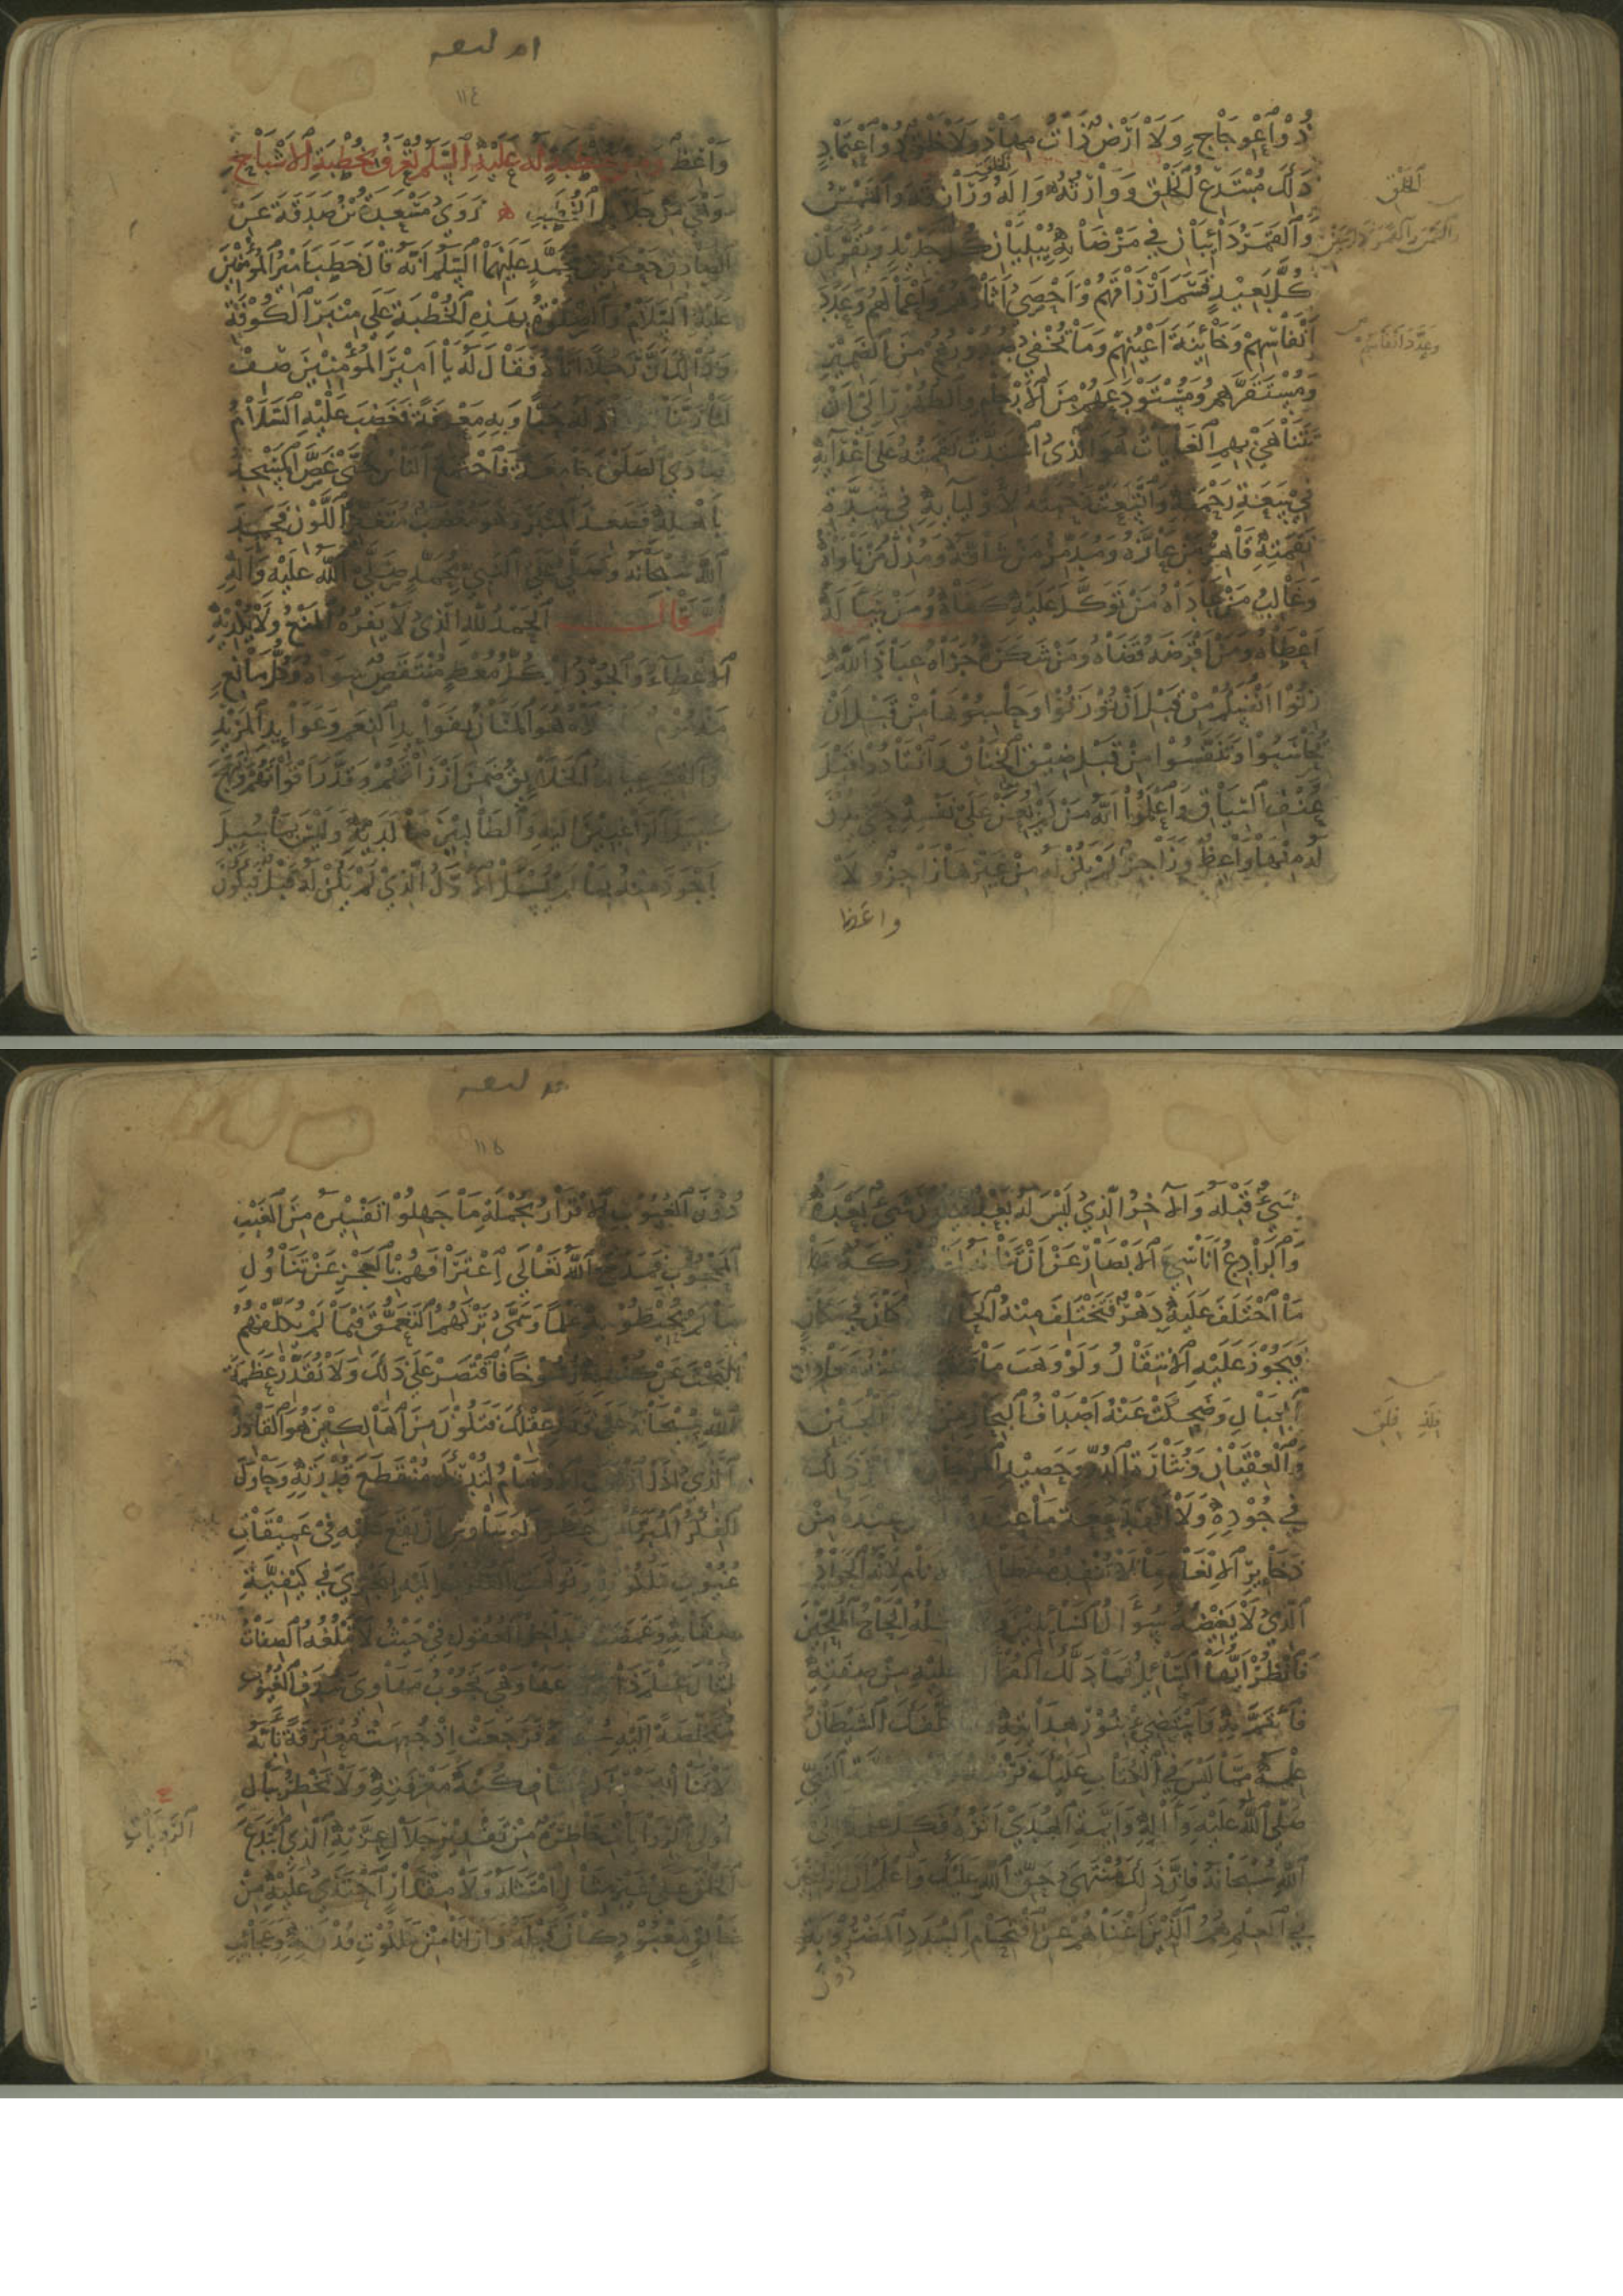 ذُو اعْوِجَاجٍ وَلَا اَرْضٌ ذَاتُ مِهَادٍ وَلَا خَلْقٌ ذُو اعْتِمَادٍ
ذٰلِكَ مُبْتَدِعُ الْخَلْقِ وَوَارِثُهُ وَاِلٰهُ وَرَازِقُهُ وَالشَّمْسُ
الْخَلْقِ
وَالْقَمَرُ دَائِبَانِ فِي مَرْضَاتِهِ يُبْلِيَانِ كُلَّ جَدِيدٍ وَيُقَرِّبَانِ
كُلَّ بَعِيدٍ قَسَمَ اَرْزَاقَهُمْ وَاَحْصَى اٰثَارَهُمْ وَاَعْمَالَهُمْ وَعَدَدَ
اَنْفَاسِهِمْ وَخَائِنَةَ اَعْيُنِهِمْ وَمَا تُخْفِي صُدُورُهُمْ مِنَ الضَّمِيرِ
وَعَدَّدَ اَنْفَاسَهُمْ
وَمُسْتَقَرَّهُمْ وَمُسْتَوْدَعَهُمْ مِنَ الْاَرْحَامِ وَالظُّهُورِ اِلَى اَنْ
تَتَنَاهَى بِهِمُ الْغَايَاتُ هُوَ الَّذِي اشْتَدَّتْ نِقْمَتُهُ عَلَى اَعْدَائِهِ
فِي سَعَةِ رَحْمَتِهِ وَاتَّسَعَتْ رَحْمَتُهُ لِاَوْلِيَائِهِ فِي شِدَّةِ
نِقْمَتِهِ قَاهِرُ مَنْ عَازَّهُ وَمُدَمِّرُ مَنْ شَاقَّهُ وَمُذِلُّ مَنْ نَاوَاهُ
وَغَالِبُ مَنْ عَادَاهُ مَنْ تَوَكَّلَ عَلَيْهِ كَفَاهُ وَمَنْ سَاَلَهُ
اَعْطَاهُ وَمَنْ اَقْرَضَهُ قَضَاهُ وَمَنْ شَكَرَهُ جَزَاهُ عِبَادَ اللّٰهِ
زِنُوا اَنْفُسَكُمْ مِنْ قَبْلِ اَنْ تُوزَنُوا وَحَاسِبُوهَا مِنْ قَبْلِ اَنْ
تُحَاسَبُوا وَتَنَفَّسُوا مِنْ قَبْلِ ضِيقِ الْخِنَاقِ وَانْقَادُوا قَبْلَ
عُنْفِ السِّيَاقِ وَاعْلَمُوا اَنَّهُ مَنْ لَمْ يُعَنْ عَلَى نَفْسِهِ حَتَّى يَكُونَ
لَهُ مِنْهَا وَاعِظٌ وَزَاجِرٌ لَمْ يَكُنْ لَهُ مِنْ غَيْرِهَا زَاجِرٌ وَلَا
واعظ
١١٤
وَاعِظٌ وَمِنْ خُطْبَةٍ لَهُ عَلَيْهِ السَّلَمُ تُعْرَفُ بِخُطْبَةِ الْاَشْبَاحِ
وَهِيَ مِنْ جَلَائِلِ الْخُطَبِ رَوَى مَسْعَدَةُ بْنُ صَدَقَةَ عَنِ
الصَّادِقِ جَعْفَرِ بْنِ مُحَمَّدٍ عَلَيْهِمَا السَّلَمُ اَنَّهُ قَالَ خَطَبَ اَمِيرُ الْمُؤْمِنِينَ
عَلَيْهِ السَّلَامُ بِهٰذِهِ الْخُطْبَةِ عَلَى مِنْبَرِ الْكُوفَةِ
وَذٰلِكَ اَنَّ رَجُلًا اَتَاهُ فَقَالَ لَهُ يَا اَمِيرَ الْمُؤْمِنِينَ صِفْ
لَنَا رَبَّنَا لِنَزْدَادَ لَهُ حُبًّا وَبِهِ مَعْرِفَةً فَغَضِبَ عَلَيْهِ السَّلَامُ
وَنَادَى الصَّلٰوةَ جَامِعَةً فَاجْتَمَعَ النَّاسُ حَتَّى غَصَّ الْمَسْجِدُ
بِاَهْلِهِ فَصَعِدَ الْمِنْبَرَ وَهُوَ مُغْضَبٌ مُتَغَيِّرُ اللَّوْنِ فَحَمِدَ
اللّٰهَ سُبْحَانَهُ وَصَلَّى عَلَى النَّبِيِّ مُحَمَّدٍ صَلَّى اللّٰهُ عَلَيْهِ وَاٰلِهِ
ثُمَّ قَالَ اَلْحَمْدُ لِلّٰهِ الَّذِي لَا يَفِرُهُ الْمَنْعُ وَلَا يُكْدِيهِ
الْاِعْطَاءُ وَالْجُودُ اِذْ كُلُّ مُعْطٍ مُنْتَقِصٌ سِوَاهُ وَكُلُّ مَانِعٍ
مَذْمُومٌ مَا خَلَاهُ هُوَ الْمَنَّانُ بِفَوَائِدِ النِّعَمِ وَعَوَائِدِ الْمَزِيدِ
وَالْقِسَمِ عِيَالُهُ الْخَلَائِقُ ضَمِنَ اَرْزَاقَهُمْ وَقَدَّرَ اَقْوَاتَهُمْ وَنَهَجَ
سَبِيلَ الرَّاغِبِينَ اِلَيْهِ وَالطَّالِبِينَ مَا لَدَيْهِ وَلَيْسَ بِمَا سُئِلَ
بِاَجْوَدَ مِنْهُ بِمَا لَمْ يُسْئَلْ الْاَوَّلُ الَّذِي لَمْ يَكُنْ لَهُ قَبْلٌ فَيَكُونَ
شَيْءٌ قَبْلَهُ وَالْاٰخِرُ الَّذِي لَيْسَ لَهُ بَعْدٌ فَيَكُونَ شَيْءٌ بَعْدَهُ
وَالرَّادِعُ اَنَاسِيَّ الْاَبْصَارِ عَنْ اَنْ تَنَالَهُ اَوْ تُدْرِكَهُ
مَا اخْتَلَفَ عَلَيْهِ دَهْرٌ فَتَخْتَلِفَ مِنْهُ الْحَالُ كَانَ فِي مَكَانٍ
فَيَجُوزَ عَلَيْهِ الْاِنْتِقَالُ وَلَوْ وَهَبَ مَا عَنْهُ مَعَادِنُ
الْجِبَالِ وَضَحِكَتْ عَنْهُ اَصْدَافُ الْبِحَارِ مِنْ اللُّجَيْنِ
فِلِذِّ فِلَقِ
وَالْعِقْيَانِ وَنُثَارَةِ الدُّرِّ وَحَصِيدِ الْمَرْجَانِ ذٰلِكَ
فِي جُودِهِ وَلَا اَنْفَدَ سَعَةَ مَا عِنْدَهُ عِنْدَهُ مِنْ
ذَخَائِرِ الْاِنْعَامِ مَا لَا تُنْفِدُهُ مَطَالِبُ الْاَنَامِ لِاَنَّهُ الْجَوَادُ
الَّذِي لَا يَغِيضُهُ سُؤَالُ السَّائِلِينَ وَلَا يُبْخِلُهُ اِلْحَاحُ الْمُلِحِّينَ
فَانْظُرْ اَيُّهَا السَّائِلُ فَمَا دَلَّكَ الْقُرْاٰنُ عَلَيْهِ مِنْ صِفَتِهِ
فَأْتَمَّ بِهِ وَاسْتَضِئْ بِنُورِ هِدَايَتِهِ وَمَا كَلَّفَكَ الشَّيْطَانُ
عِلْمَهُ مِمَّا لَيْسَ فِي الْكِتَابِ عَلَيْكَ فَرْضُهُ النَّبِيِّ
صَلَّى اللّٰهُ عَلَيْهِ وَاٰلِهِ وَاَئِمَّةِ الْهُدَى اَثَرُهُ فَكِلْ عِلْمَهُ اِلَى
اللّٰهِ سُبْحَانَهُ فَاِنَّ ذٰلِكَ مُنْتَهَى حَقِّ اللّٰهِ عَلَيْكَ وَاعْلَمْ اَنَّ الرَّاسِخِينَ
فِي الْعِلْمِ هُمُ الَّذِينَ اَغْنَاهُمْ عَنِ اقْتِحَامِ السُّدَدِ الْمَضْرُوبَةِ
دون
١١٥
دُونَ الْغُيُوبِ الْاِقْرَارُ بِجُمْلَةِ مَا جَهِلُوا تَفْسِيرَهُ مِنَ الْغَيْبِ
الْمَحْجُوبِ فَمَدَحَ اللّٰهُ تَعَالَى اعْتِرَافَهُمْ بِالْعَجْزِ عَنْ تَنَاوُلِ
مَا لَمْ يُحِيطُوا بِهِ عِلْمًا وَسَمَّى تَرْكَهُمُ التَّعَمُّقَ فِيمَا لَمْ يُكَلِّفْهُمُ
الْبَحْثَ عَنْ كُنْهِهِ رُسُوخًا فَاقْتَصِرْ عَلَى ذٰلِكَ وَلَا تُقَدِّرْ عَظَمَةَ
اللّٰهِ سُبْحَانَهُ عَلَى قَدْرِ عَقْلِكَ فَتَكُونَ مِنَ الْهَالِكِينَ هُوَ الْقَادِرُ
الَّذِي اِذَا ارْتَمَتِ الْاَوْهَامُ لِتُدْرِكَ مُنْقَطَعَ قُدْرَتِهِ وَحَاوَلَ
الْفِكْرُ الْمُبَرَّأُ مِنْ خَطَرِ الْوَسَاوِسِ اَنْ يَقَعَ عَلَيْهِ فِي عَمِيقَاتِ
غُيُوبِ مَلَكُوتِهِ وَتَوَلَّهَتِ الْقُلُوبُ اِلَيْهِ لِتَجْرِيَ فِي كَيْفِيَّةِ
صِفَاتِهِ وَغَمَضَتْ مَدَاخِلُ الْعُقُولِ فِي حَيْثُ لَا تَبْلُغُهُ الصِّفَاتُ
لِتَنَالَ عِلْمَ ذَاتِهِ رَدَعَهَا وَهِيَ تَجُوبُ مَهَاوِيَ سُدَفِ الْغُيُوبِ
مُتَخَلِّصَةً اِلَيْهِ سُبْحَانَهُ فَرَجَعَتْ اِذْ جُبِهَتْ مُعْتَرِفَةً بِاَنَّهُ
لَا يُنَالُ بِجَوْرِ الْاِعْتِسَافِ كُنْهُ مَعْرِفَتِهِ وَلَا تَخْطُرُ بِبَالِ
اُولِي الرَّوِيَّاتِ خَاطِرَةٌ مِنْ تَقْدِيرِ جَلَالِ عِزَّتِهِ الَّذِي ابْتَدَعَ
الرَّوِيَّاتِ
الْخَلْقَ عَلَى غَيْرِ مِثَالٍ امْتَثَلَهُ وَلَا مِقْدَارٍ احْتَذَى عَلَيْهِ مِنْ
خَالِقٍ مَعْبُودٍ كَانَ قَبْلَهُ وَاَرَانَا مِنْ مَلَكُوتِ قُدْرَتِهِ وَعَجَائِبِ